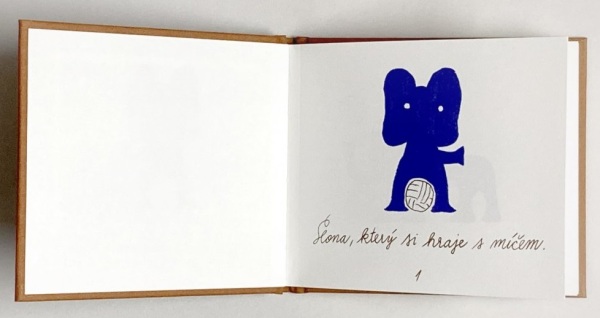 Slona, který si hraje s míčem.
1